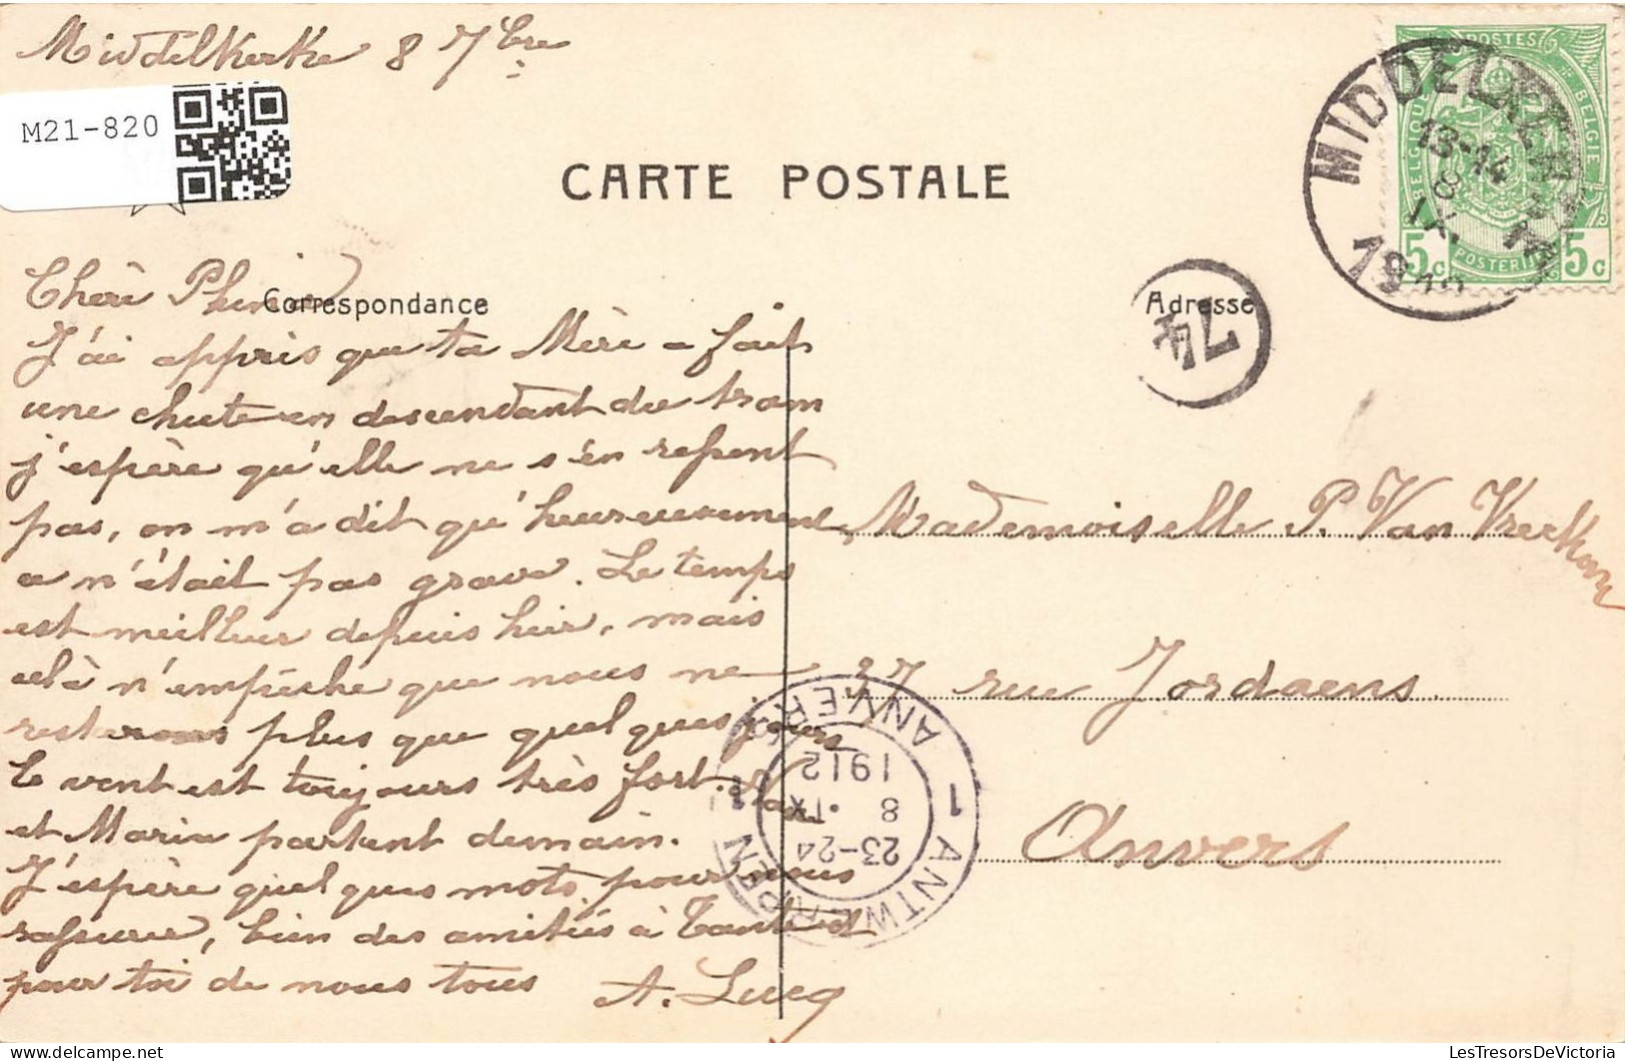 Middelkerke 8 7bre
M21-820
CARTE POSTALE
POSTES
BELGIQUE
BELGIE
5c POSTERIJEN 5c
MIDDELKERKE
13-14
8
IX.
1912
Correspondance
Adresse
74
Chère
J'ai appris que ta Mère a fait
une chute en descendant du tram
j'espère qu'elle ne s'en repent
pas, on m'a dit qu'heureusement
ce n'était pas grave. Le temps
est meilleur depuis hier, mais
celà n'empêche que nous ne
resterons plus que quelques jours
le vent est toujours très fort.
et Maria partent demain.
J'espère quelques mots pour nous
rassurer, bien des amitiés à Tante et
pour toi de nous tous
A. Lucq
Mademoiselle P. Van Vreckom
37 rue Jordaens.
Anvers
1 ANTWERPEN 1 ANVERS
23-24
8
IX
1912
LesTresorsDeVictoria
www.delcampe.net